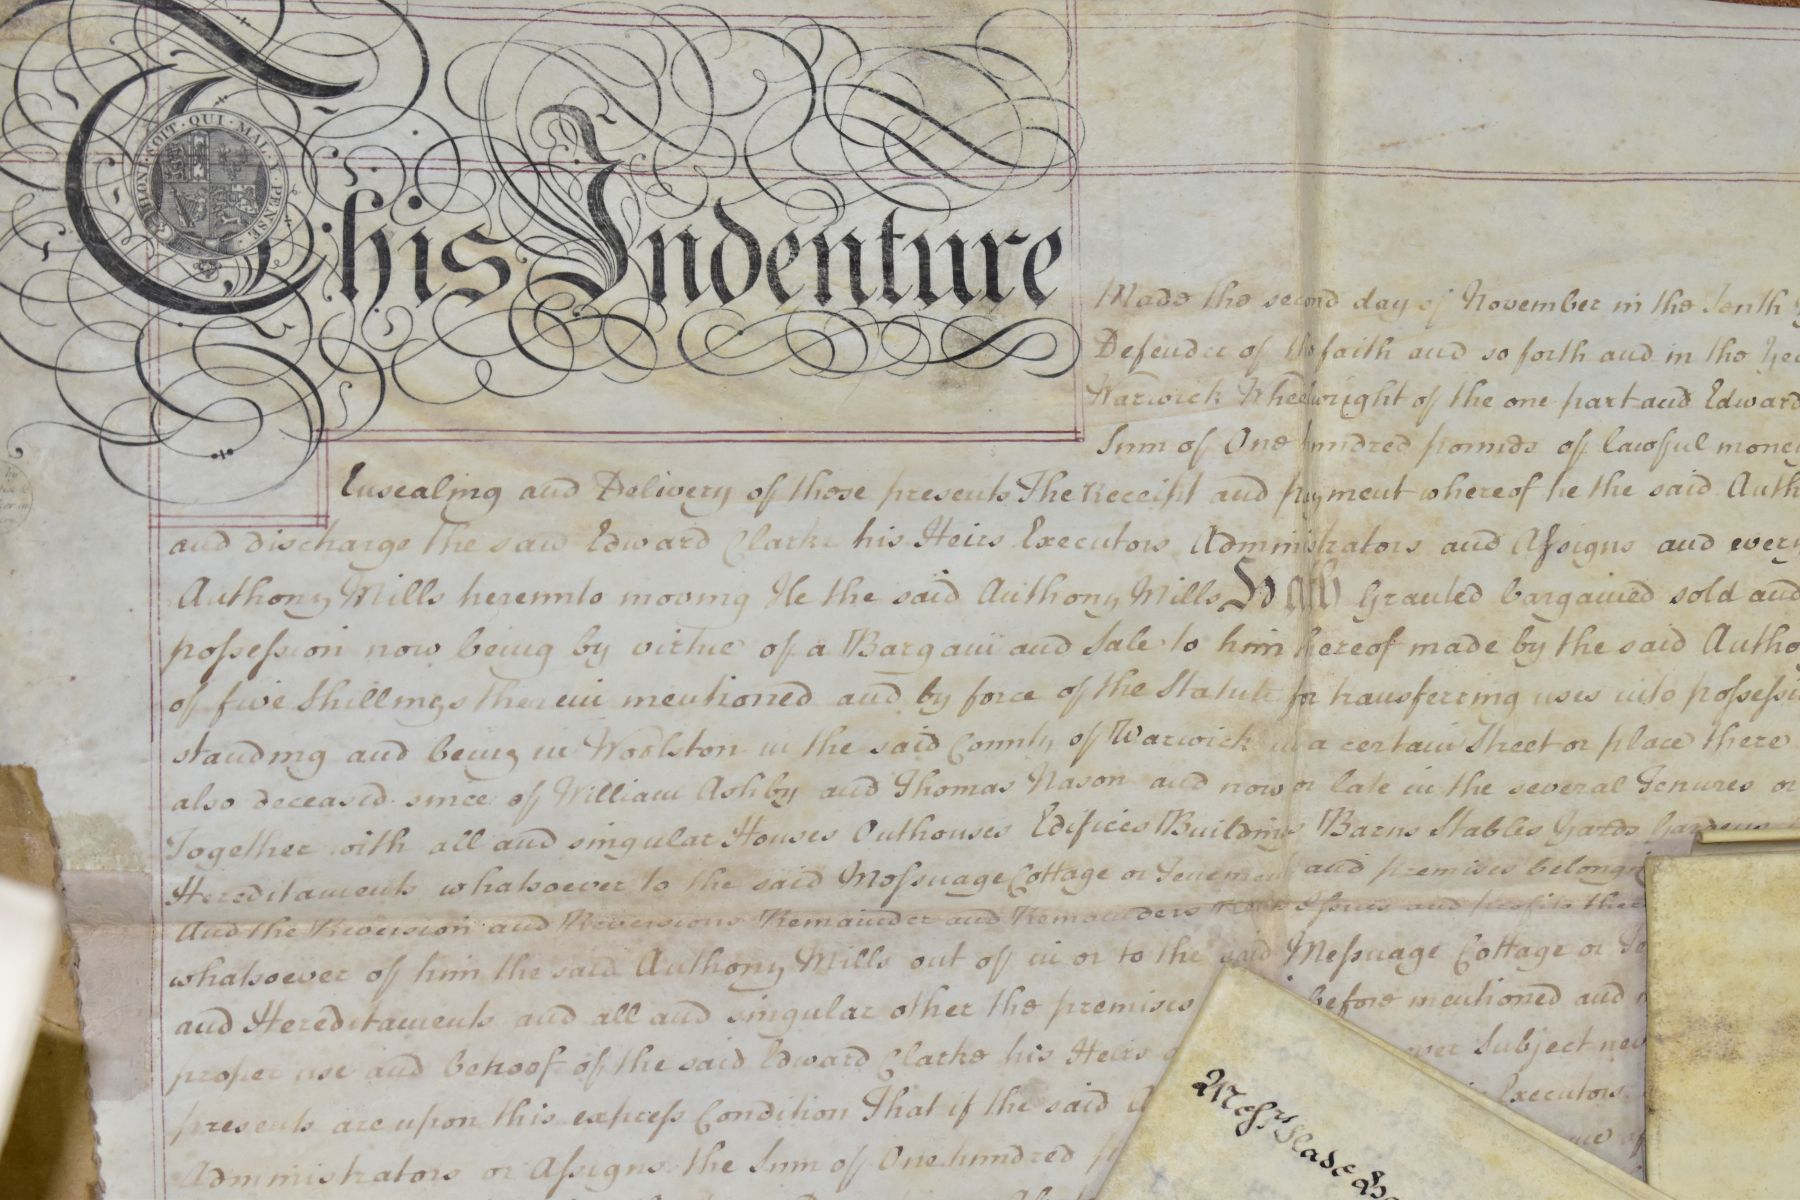 HONI · SOIT · QUI · MAL · Y · PENSE ·
This Indenture
Made the second day of November in the Tenth
Defender of the faith and so forth and in the
Warwick Wheelwright of the one part and Edward
Sum of One hundred pounds of lawful money
Ensealing and Delivery of these presents The Receipt and payment whereof he the said
and discharge the said Edward Clarke his Heirs Executors Administrators and Aſsigns and every
Anthony Mills hereunto moving He the said Anthony Mills Hath Granted bargained sold and
poſseſsion now being by virtue of a Bargain and Sale to him hereof made by the said
of five Shillings therein mentioned and by force of the Statute for transferring uses into
standing and being in Woolston in the said County of Warwick in a certain Street or place there
also deceased since of William Ashby and Thomas Nason and now or late in the several Tenures or
Together with all and singular Houses Outhouses Edifices Buildings Barns Stables Yards Gardens
Hereditaments whatsoever to the said Meſsuage Cottage or Tenement and premises
And the Reversion and Reversions Remainder and Remainders Rents Iſsues and profits
whatsoever of him the said Anthony Mills out of in or to the said Meſsuage Cottage or
and Hereditaments and all and singular other the premises before mentioned and
proper use and behoof of the said Edward Clarke his Heirs Subject
presents are upon this expreſs Condition That if the said Executors
Administrators or Aſsigns the Sum of One hundred
Meſsrs Slade